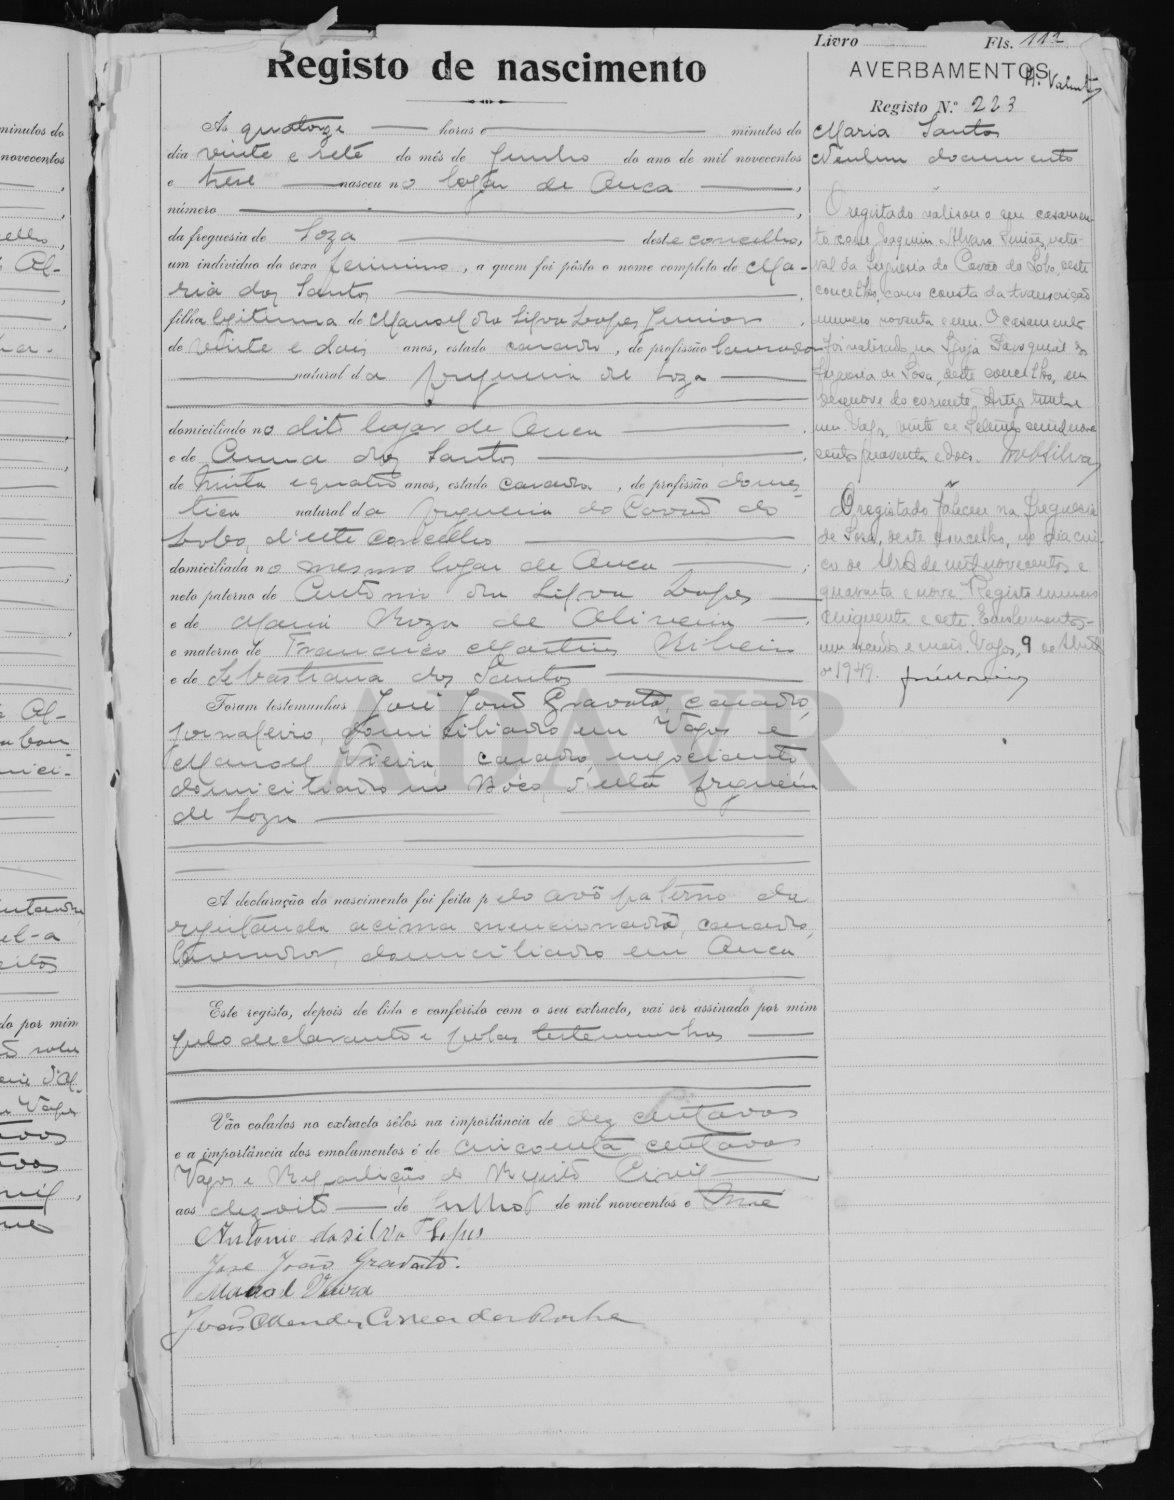 Livro Fls. 112
Registo de nascimento
As quatorze horas e minutos do
dia vinte e sete do mês de Junho do ano de mil novecentos
e treze nasceu no logar de Ouca
número
da freguesia de Soza deste concelho,
um individuo do sexo feminino, a quem foi pôsto o nome completo de Ma-
ria dos Santos
filha legitima de Manoel da Silva Lopes Junior,
de vinte e dois anos, estado casado, de profissão lavrador
natural da freguesia de Soza
domiciliado no dito logar de Ouca
e de Anna dos Santos
de trinta e quatro anos, estado casada, de profissão domes-
tica natural da freguesia do Covão do
Lobo, d'este concelho
domiciliada no mesmo logar de Ouca
neto paterno de Antonio da Silva Lopes
e de Maria Roza de Oliveira
e materno de Francisco Martins Ribeiro
e de Sebastiana dos Santos
Foram testemunhas José João Gravato, casado,
jornaleiro, domiciliado em Vagos e
Manoel Vieira, casado, negociante
domiciliado em d'esta freguesia
de Soza
A declaração do nascimento foi feita pelo avô paterno da
registanda acima mencionado, casado,
lavrador, domiciliado em Ouca
Este registo, depois de lido e conferido com o seu extracto, vai ser assinado por mim
pelo declarante e pelas testemunhas
Vão colados no extracto sêlos na importância de dez centavos
e a importância dos emolumentos é de cincoenta centavos
Vagos e Repartição do Registo Civil
aos dezoito de Julho de mil novecentos e treze
Antonio da Silva Lopes
José João Gravato.
Manoel Vieira
João Mendes Correa da Rocha
AVERBAMENTOS
Registo N.º 223
Maria Santos
Nenhum documento
O registado realisou o seu casamen-
to com Joaquim Alvaro natu-
ral da freguesia do Covão do Lobo, deste
concelho, como consta da transcrição
numero noventa e um. O casamento
foi realisado na Igreja Paroquial da
freguesia de Sosa, deste concelho, em
desenove do corrente.
Vagos, vinte de Setembro mil nove
centos quarenta e dois.
O registado faleceu na freguesia
de Sosa, deste concelho, no dia cin-
co de Abril de mil novecentos e
quarenta e nove. Registo numero
cinquenta e sete. Emolumentos-
um escudo e meio. Vagos, 9 de Abril
de 1949.
ADAVR